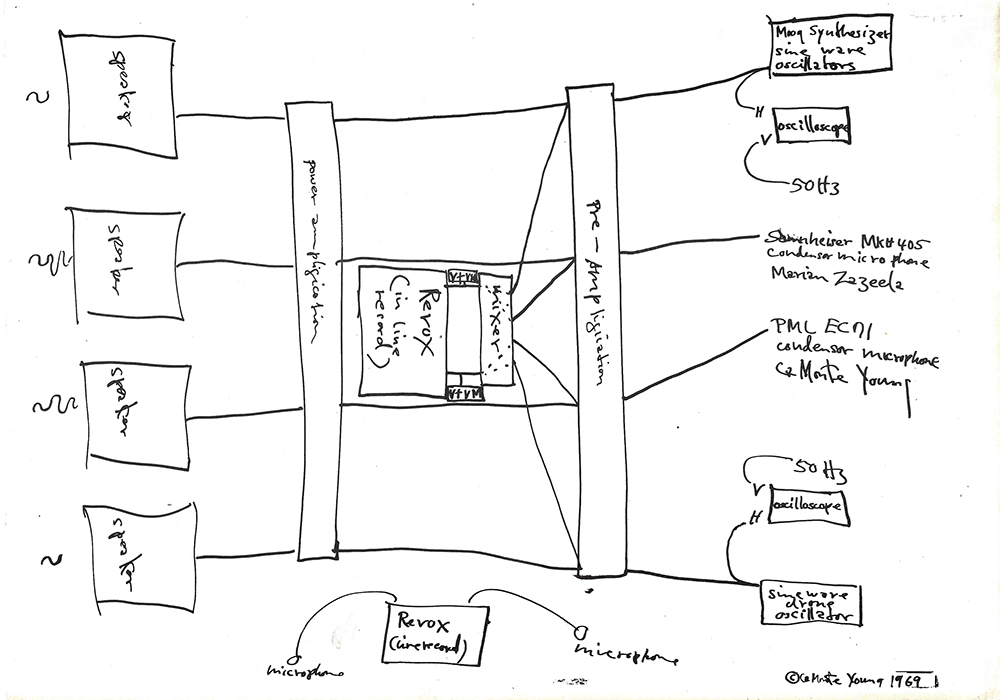 Moog Synthesizer
sine wave
oscillators
H
oscilloscope
V
50Hz
Sennheiser MKH 405
condensor microphone
Marian Zazeela
PML EC71
condensor microphone
La Monte Young
50Hz
V
oscilloscope
H
sine wave
drone
oscillator
Pre-Amplification
mixer
VTVM
VTVM
Revox
(in line
record)
power amplification
speaker
speaker
speaker
speaker
Revox
(line record)
microphone
microphone
© La Monte Young 1969